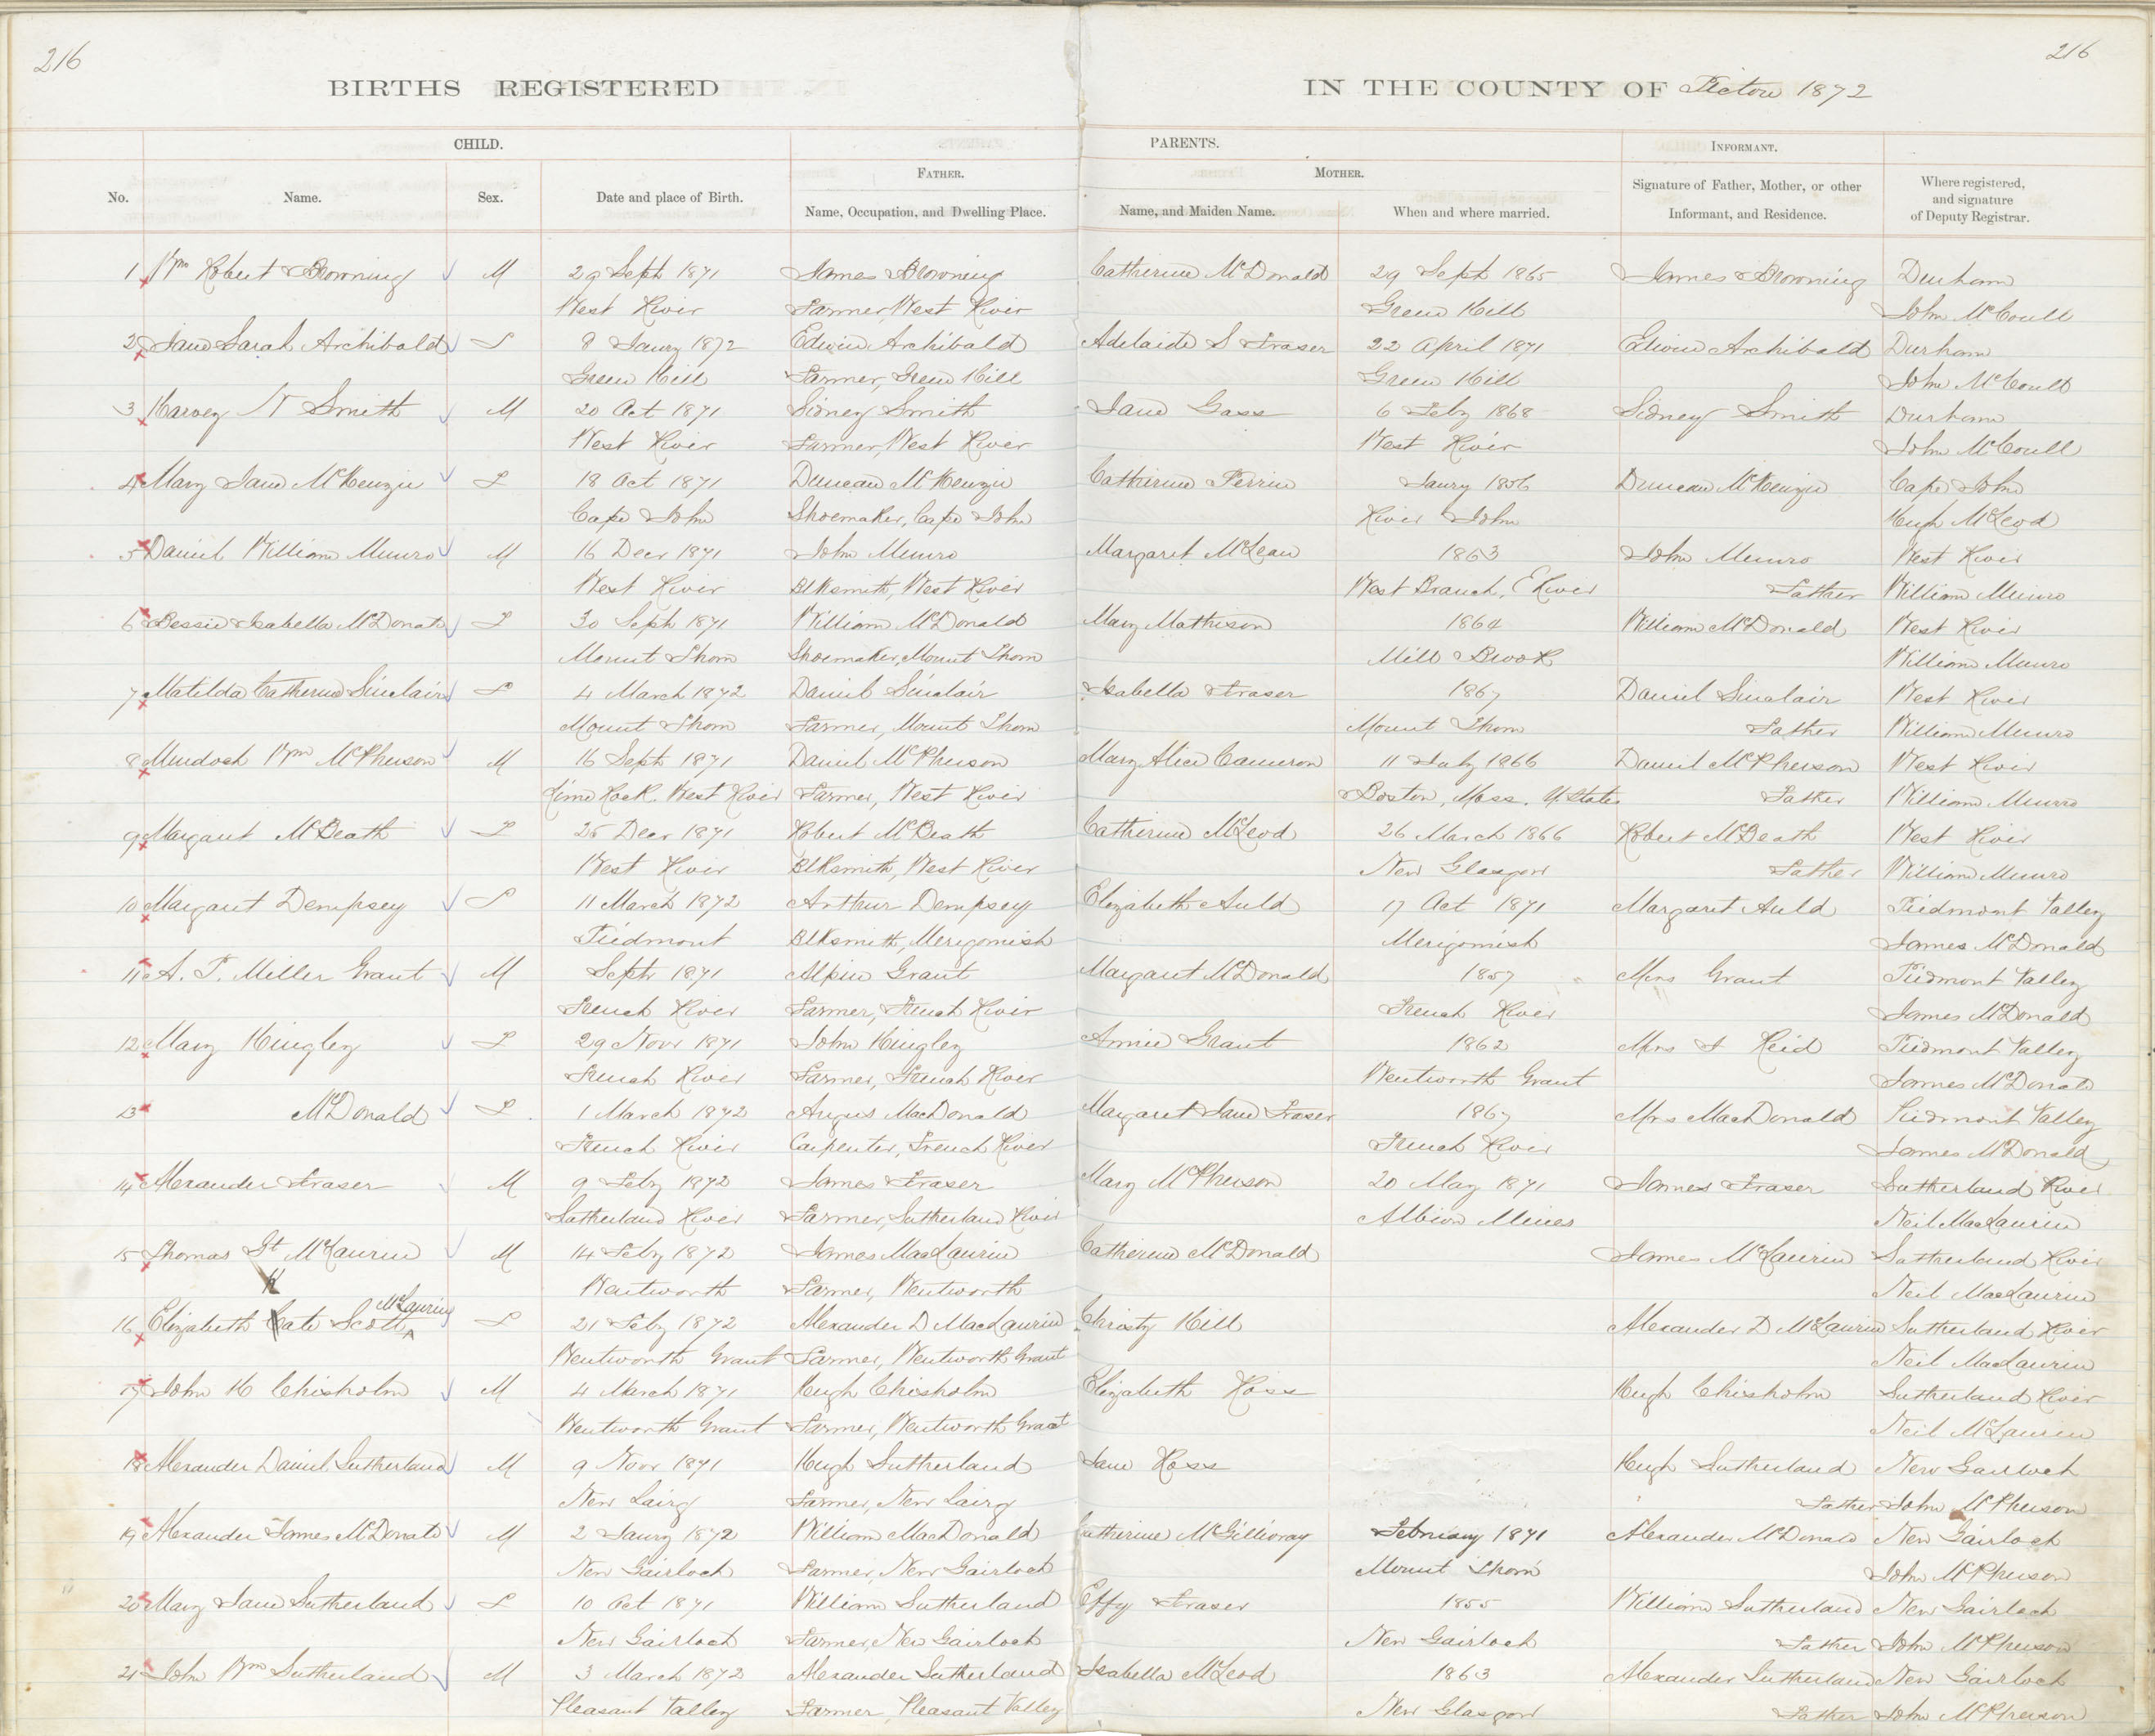 216
216
BIRTHS REGISTERED IN THE COUNTY OF Pictou 1872
CHILD. PARENTS. INFORMANT.
FATHER. MOTHER.
No. Name. Sex. Date and place of Birth. Name, Occupation, and Dwelling Place. Name, and Maiden Name. When and where married. Signature of Father, Mother, or other Informant, and Residence. Where registered, and signature of Deputy Registrar.
1 Wm Robert Browning M 29 Sept 1871 James Browning Catherine McDonald 29 Sept 1865 James Browning Durham
West River Farmer, West River Green Hill John McCoull
2 Jane Sarah Archibald F 8 Jany 1872 Edwin Archibald Adelaide S Fraser 22 April 1871 Edwin Archibald Durham
Green Hill Farmer, Green Hill Green Hill John McCoull
3 Harvey N Smith M 20 Oct 1871 Sidney Smith Jane Gass 6 Feby 1868 Sidney Smith Durham
West River Farmer, West River West River John McCoull
4 Mary Jane McKenzie F 18 Oct 1871 Duncan McKenzie Catherine Perrin Jany 1856 Duncan McKenzie Cape John
Cape John Shoemaker, Cape John River John Hugh McLeod
5 Daniel William Munro M 16 Decr 1871 John Munro Margaret McLean 1863 John Munro West River
West River Blksmith, West River West Branch, E River Father William Munro
6 Bessie Isabella McDonald F 30 Sept 1871 William McDonald Mary Mathison 1864 William McDonald West River
Mount Thom Shoemaker, Mount Thom Mill Brook William Munro
7 Matilda Catherine Sinclair F 4 March 1872 Daniel Sinclair Isabella Fraser 1867 Daniel Sinclair West River
Mount Thom Farmer, Mount Thom Mount Thom Father William Munro
8 Murdoch Wm McPherson M 16 Sept 1871 Daniel McPherson Mary Alice Cameron 11 July 1866 Daniel McPherson West River
Lime Rock, West River Farmer, West River Boston, Mass. U. States Father William Munro
9 Margaret McBeath F 25 Decr 1871 Robert McBeath Catherine McLeod 26 March 1866 Robert McBeath West River
West River Blksmith, West River New Glasgow Father William Munro
10 Margaret Dempsey F 11 March 1872 Arthur Dempsey Elizabeth Auld 17 Oct 1871 Margaret Auld Piedmont Valley
Piedmont Blksmith, Merigomish Merigomish James McDonald
11 A. P. Miller Grant M Sept 1871 Alpin Grant Margaret McDonald 1857 Mrs Grant Piedmont Valley
French River Farmer, French River French River James McDonald
12 Mary Hingley F 29 Novr 1871 John Hingley Annie Grant 1862 Mrs J Reid Piedmont Valley
French River Farmer, French River Wentworth Grant James McDonald
13 McDonald F 1 March 1872 Angus MacDonald Margaret Jane Fraser 1867 Mrs MacDonald Piedmont Valley
French River Carpenter, French River French River James McDonald
14 Alexander Fraser M 9 Feby 1872 James Fraser Mary McPherson 20 May 1871 James Fraser Sutherland River
Sutherland River Farmer, Sutherland River Albion Mines Neil MacLaurin
15 Thomas Gt McLaurin M 14 Feby 1872 James MacLaurin Catherine McDonald James McLaurin Sutherland River
Wentworth Farmer, Wentworth Neil MacLaurin
K McLaurin
16 Elizabeth Cate Scott F 21 Feby 1872 Alexander D MacLaurin Christy Hill Alexander D McLaurin Sutherland River
Wentworth Grant Farmer, Wentworth Grant Neil MacLaurin
17 John H Chisholm M 4 March 1871 Hugh Chisholm Elizabeth Ross Hugh Chisholm Sutherland River
Wentworth Grant Farmer, Wentworth Grant Neil McLaurin
18 Alexander Daniel Sutherland M 9 Novr 1871 Hugh Sutherland Jane Ross Hugh Sutherland New Gairloch
New Lairg Farmer, New Lairg Father John McPherson
19 Alexander James McDonald M 2 Jany 1872 William MacDonald Catherine McGillivray February 1871 Alexander McDonald New Gairloch
New Gairloch Farmer, New Gairloch Mount Thom John McPherson
20 Mary Jane Sutherland F 10 Oct 1871 William Sutherland Effy Fraser 1855 William Sutherland New Gairloch
New Gairloch Farmer, New Gairloch New Gairloch Father John McPherson
21 John Wm Sutherland M 3 March 1872 Alexander Sutherland Isabella McLeod 1863 Alexander Sutherland New Gairloch
Pleasant Valley Farmer, Pleasant Valley New Glasgow Father John McPherson